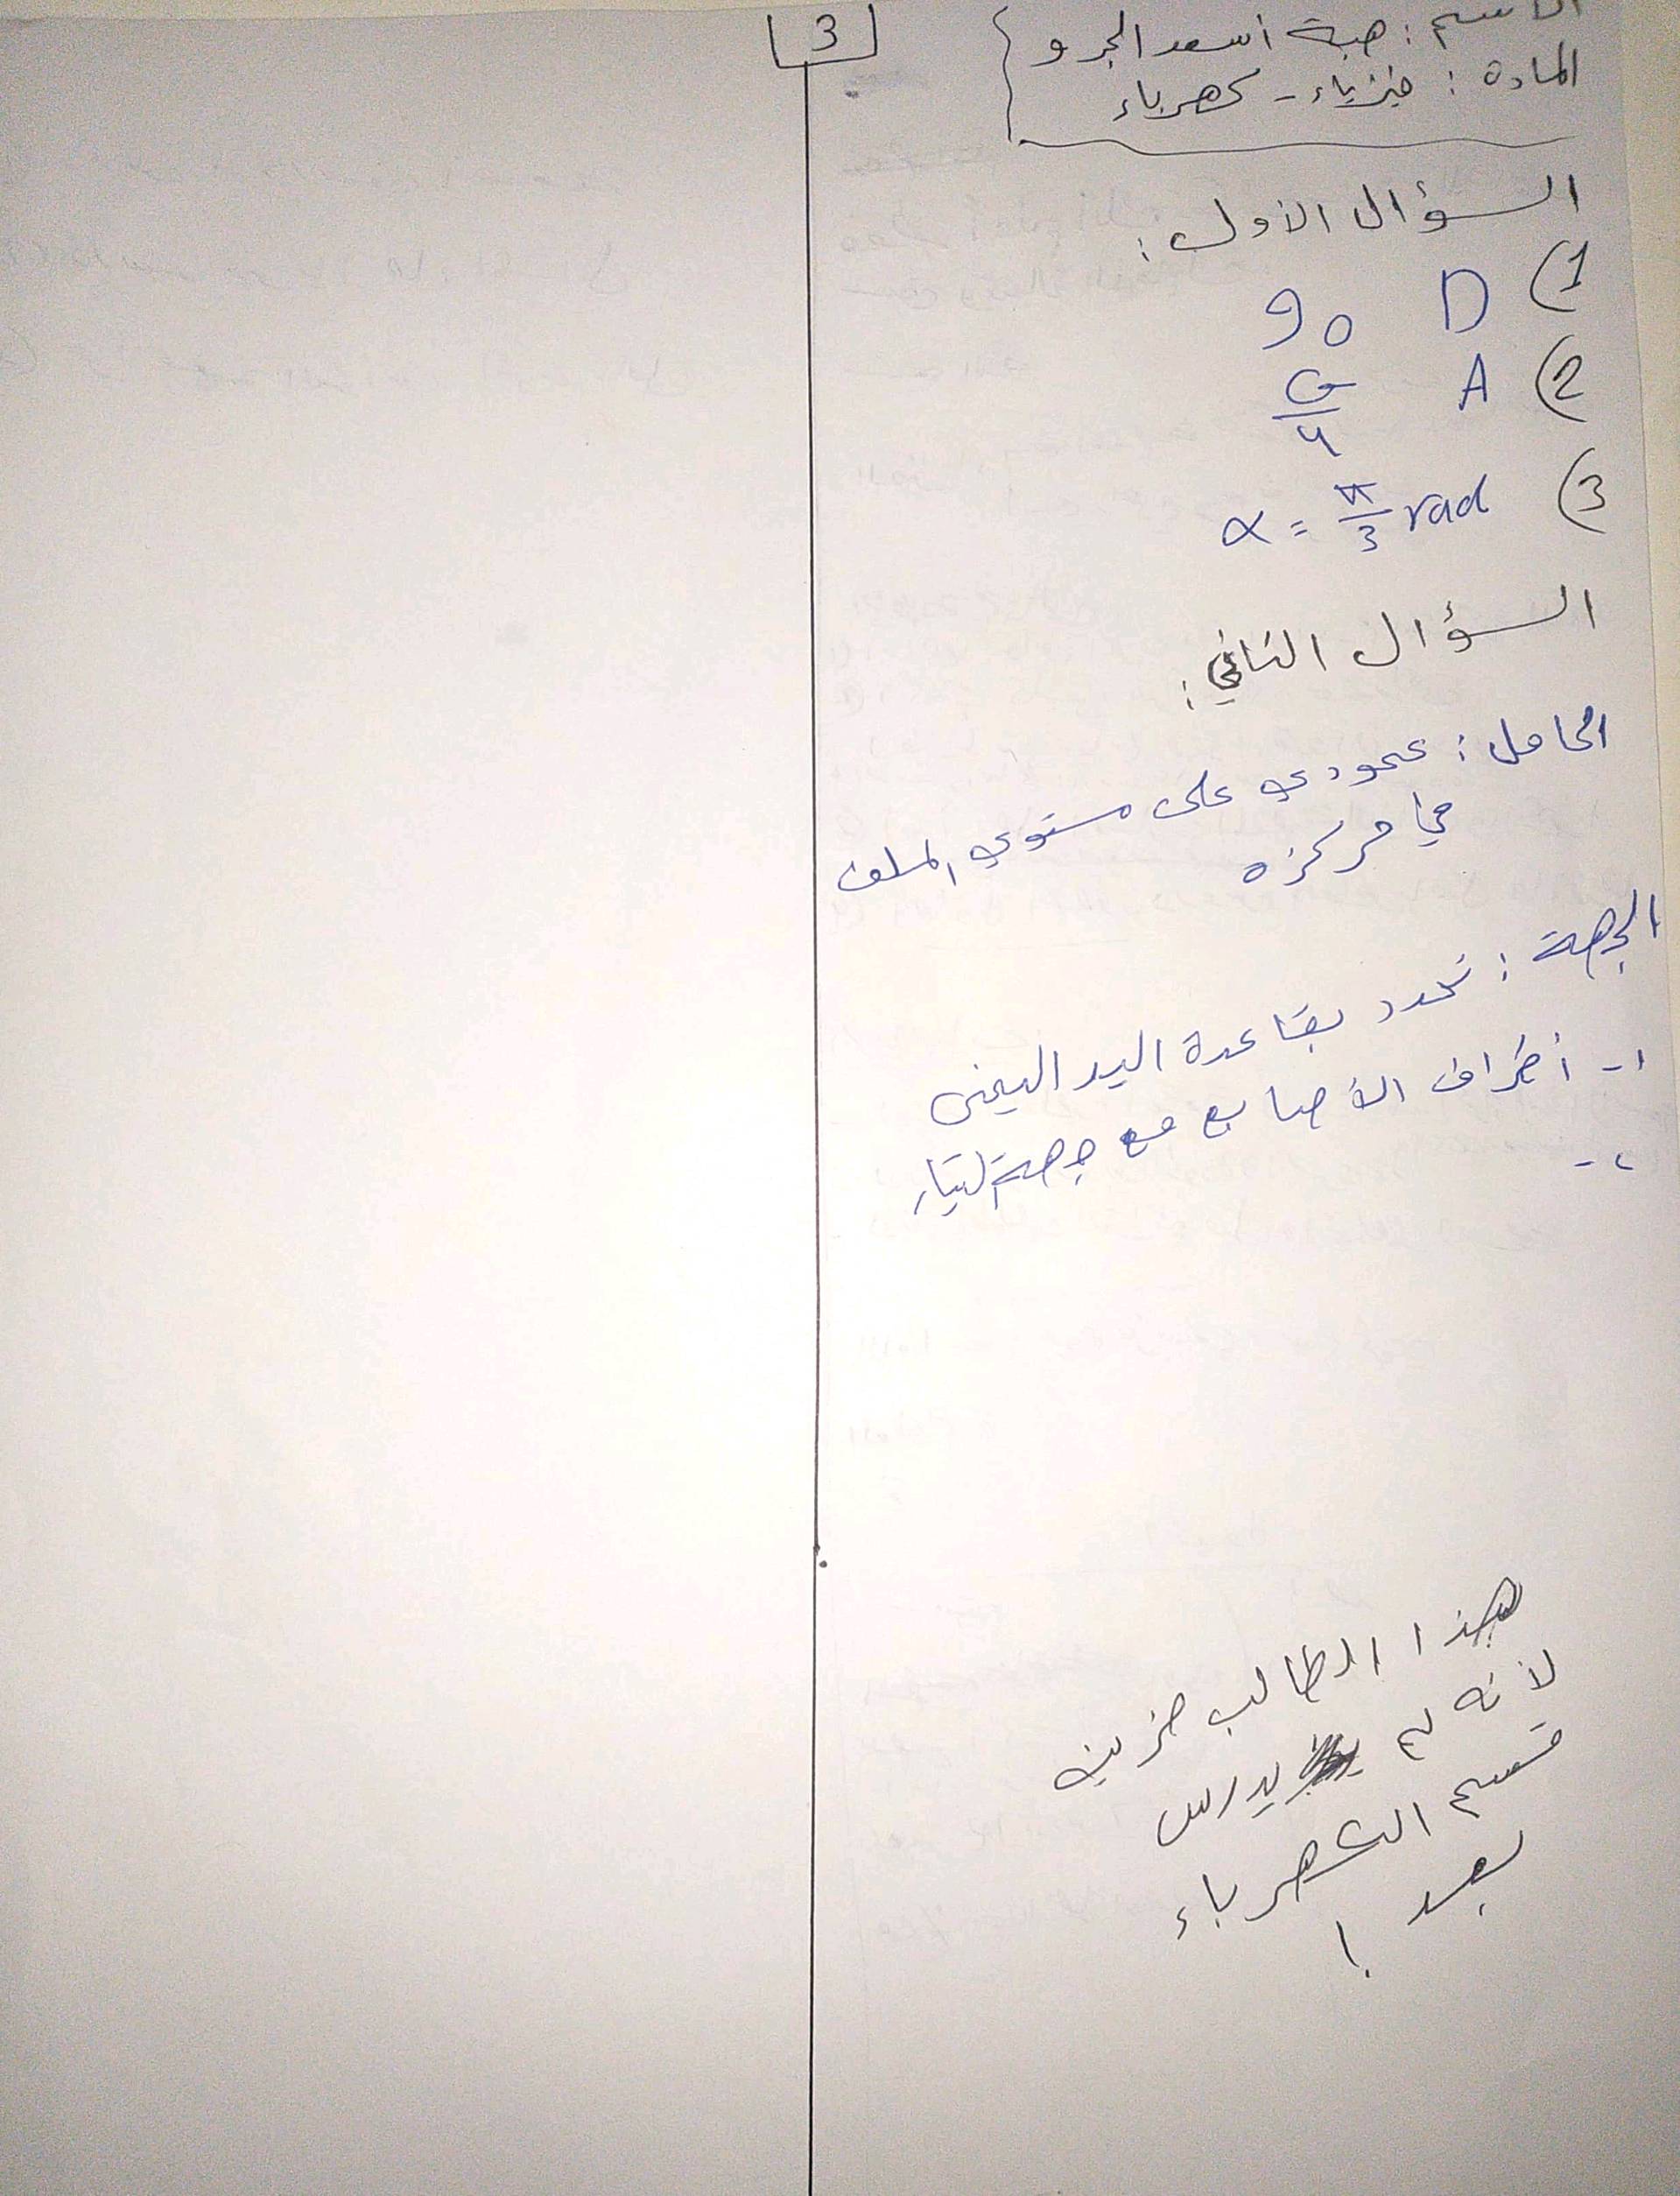 3
الاسم : هبة أسعد الجرو
المادة : فيزياء - كهرباء
السؤال الأول :
1) D 90
2) A G/4
3) α = π/3 rad
السؤال الثاني :
الحامل : عمودي على مستوي الملف
في مركزه
الجهة : تحدد بقاعدة اليد اليمنى
١- أطراف الأصابع مع جهة التيار
٢-
هذا الطالب حزين
لأنه لم يدرس
قسم الكهرباء
بعد !